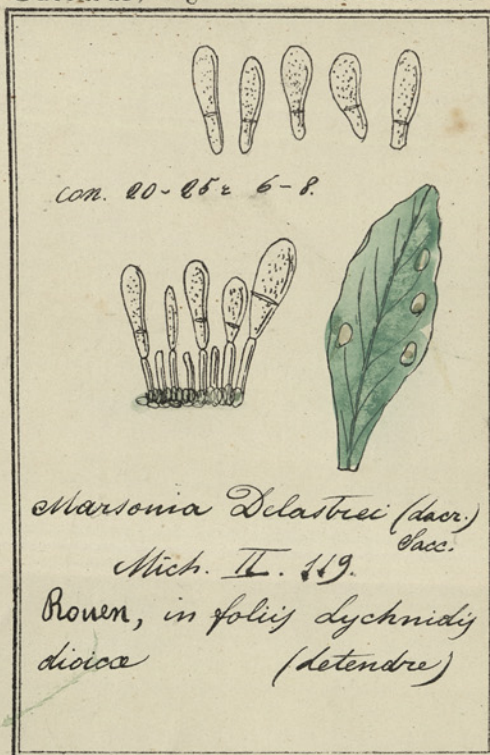 con. 20-25 = 6-8.
Marsonia Delastrei (Lacr.)
Sacc.
Mich. II. 119.
Rouen, in foliis Lychnidis
dioicæ (Letendre)